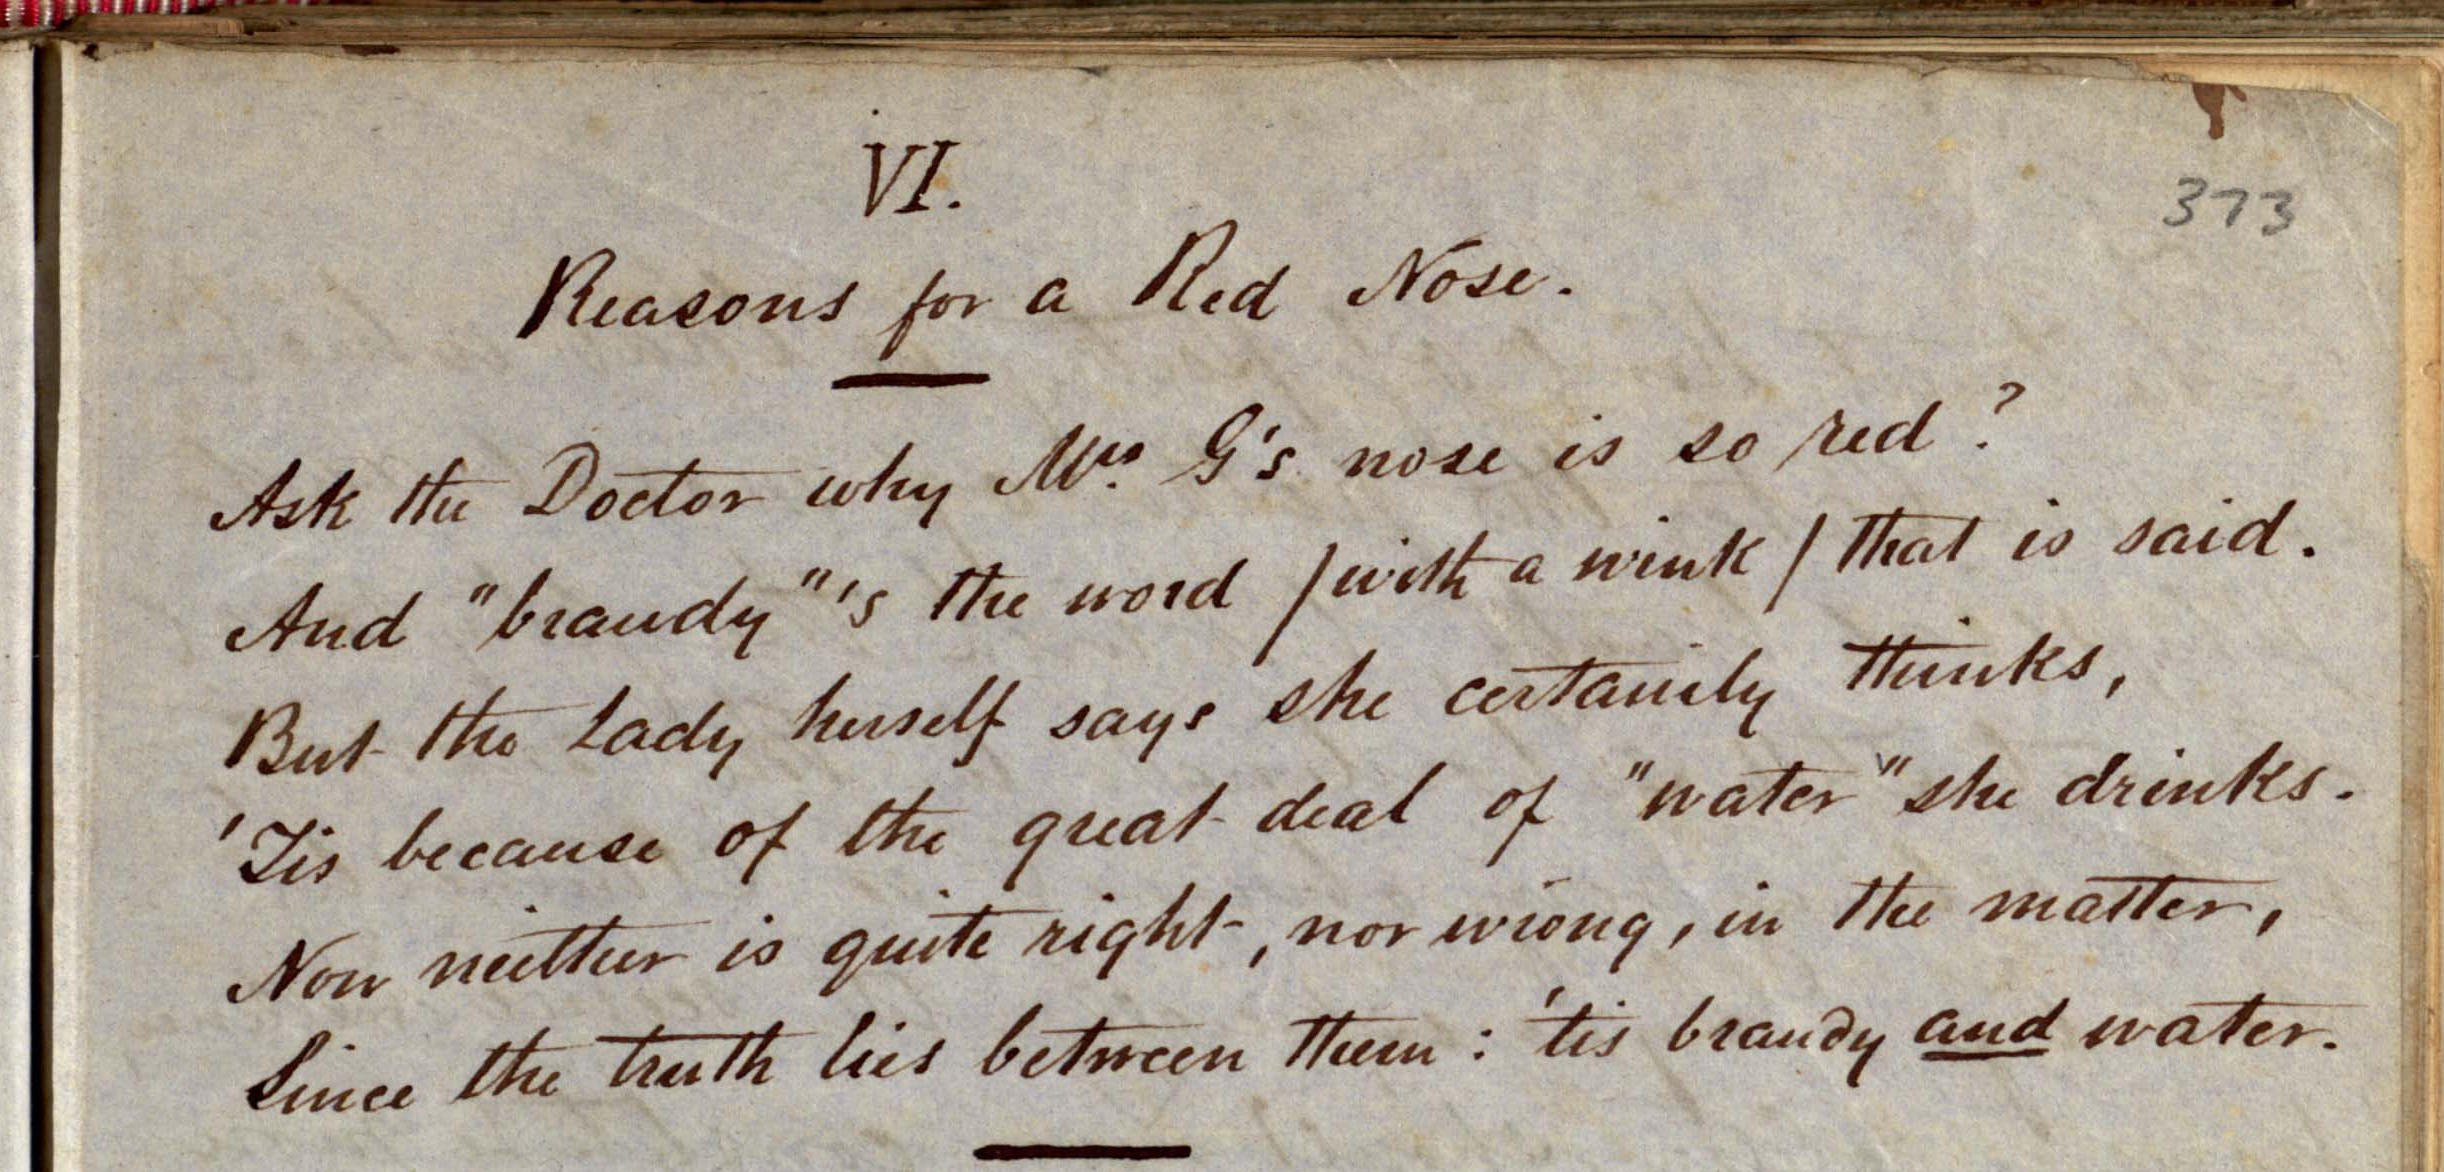 VI.
373
Reasons for a Red Nose.
Ask the Doctor why Mrs. G's nose is so red?
And "brandy"'s the word / with a wink / that is said.
But the Lady herself says she certainly thinks,
'Tis because of the great deal of "water" she drinks.
Now neither is quite right, nor wrong, in the matter,
Since the truth lies between them: 'tis brandy and water.